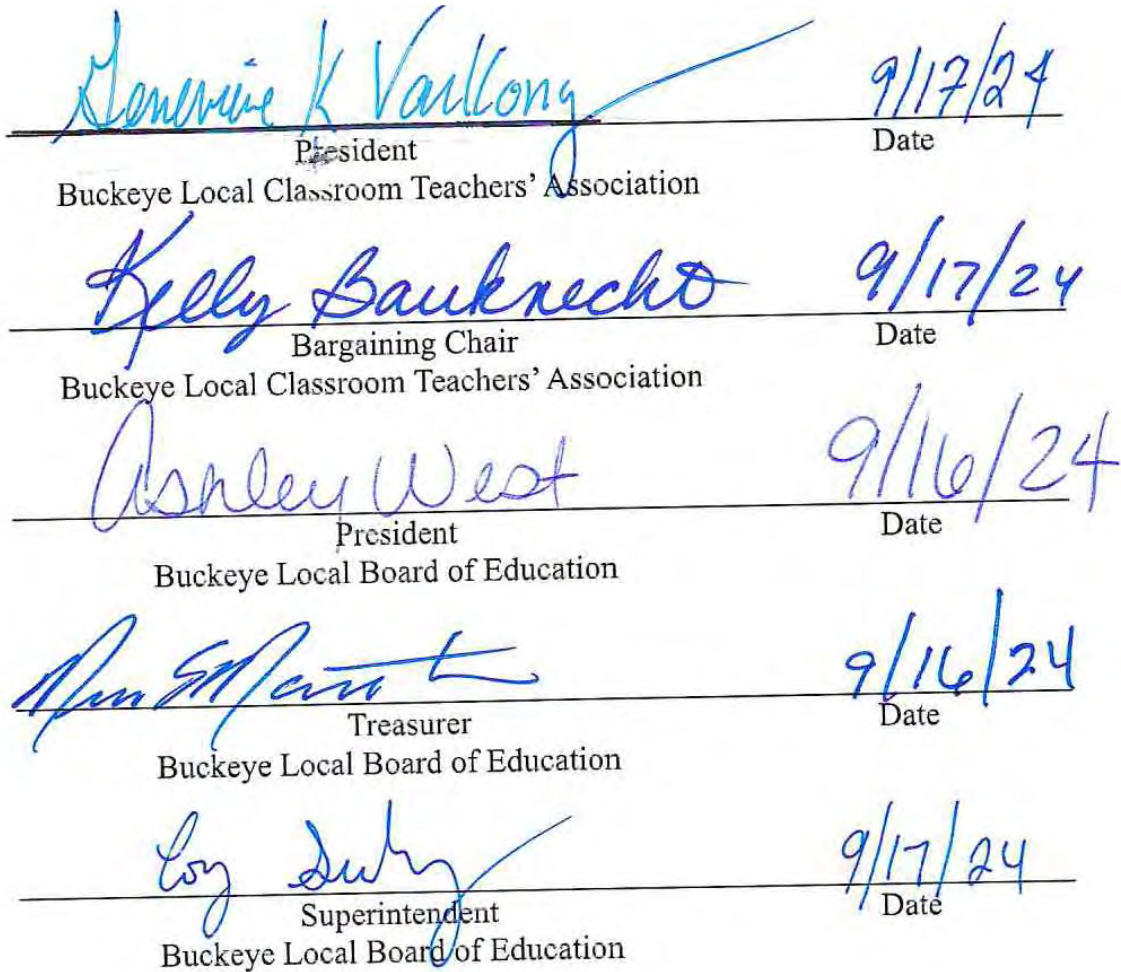 Genevieve K Varkony 9/17/24
President Date
Buckeye Local Classroom Teachers' Association
Kelly Bauknecht 9/17/24
Bargaining Chair Date
Buckeye Local Classroom Teachers' Association
Ashley West 9/16/24
President Date
Buckeye Local Board of Education
9/16/24
Treasurer Date
Buckeye Local Board of Education
9/17/24
Superintendent Date
Buckeye Local Board of Education